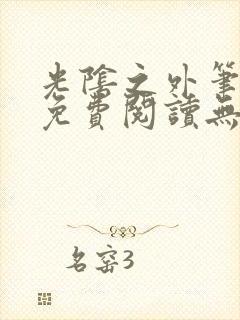 光陰之外筆
免費閱讀無
名窑3